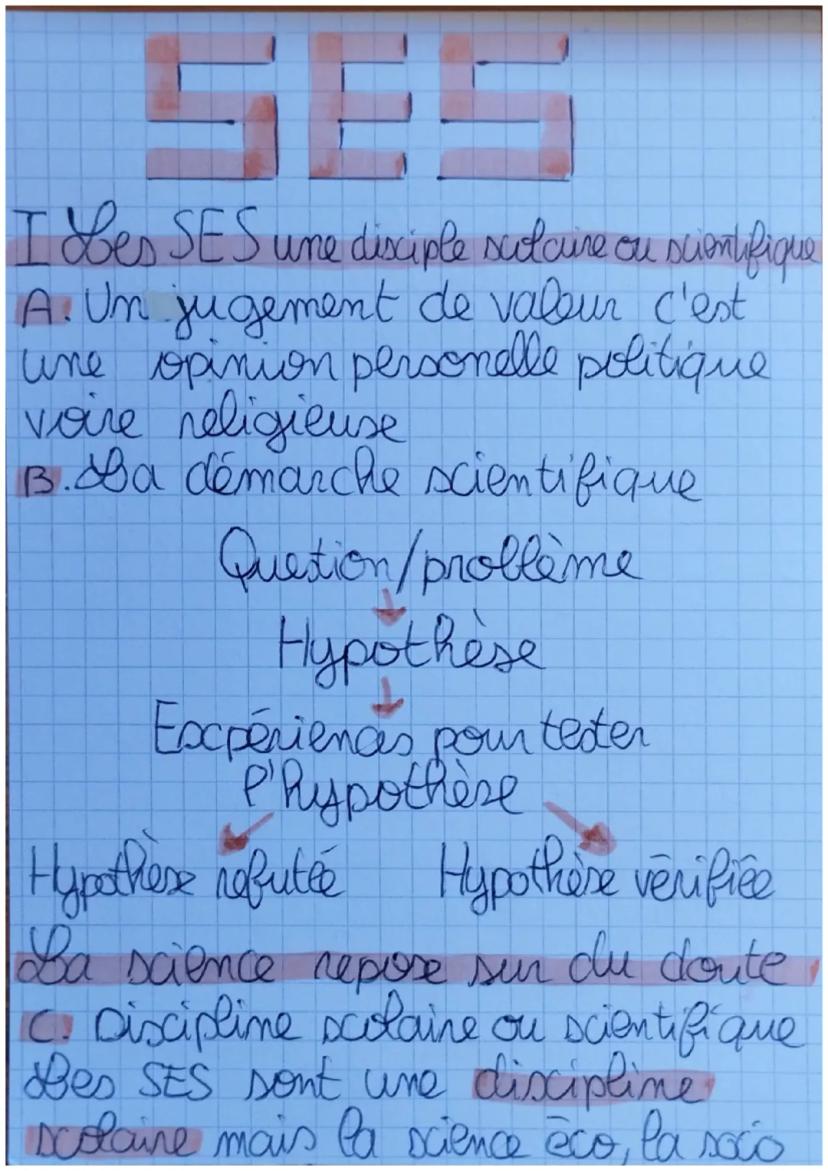 SES
I Les SES une disciple scolaire ou scientifique
A. Un jugement de valeur c'est
une opinion personelle politique
voire religieuse
B. La démarche scientifique
Question/problème
Hypothèse
Expériences pour tester
l'hypothèse
Hypothèse refutée Hypothèse vérifiée
La science repose sur du doute
C. Discipline scolaire ou scientifique
Les SES sont une discipline
scolaire mais la science éco, la socio